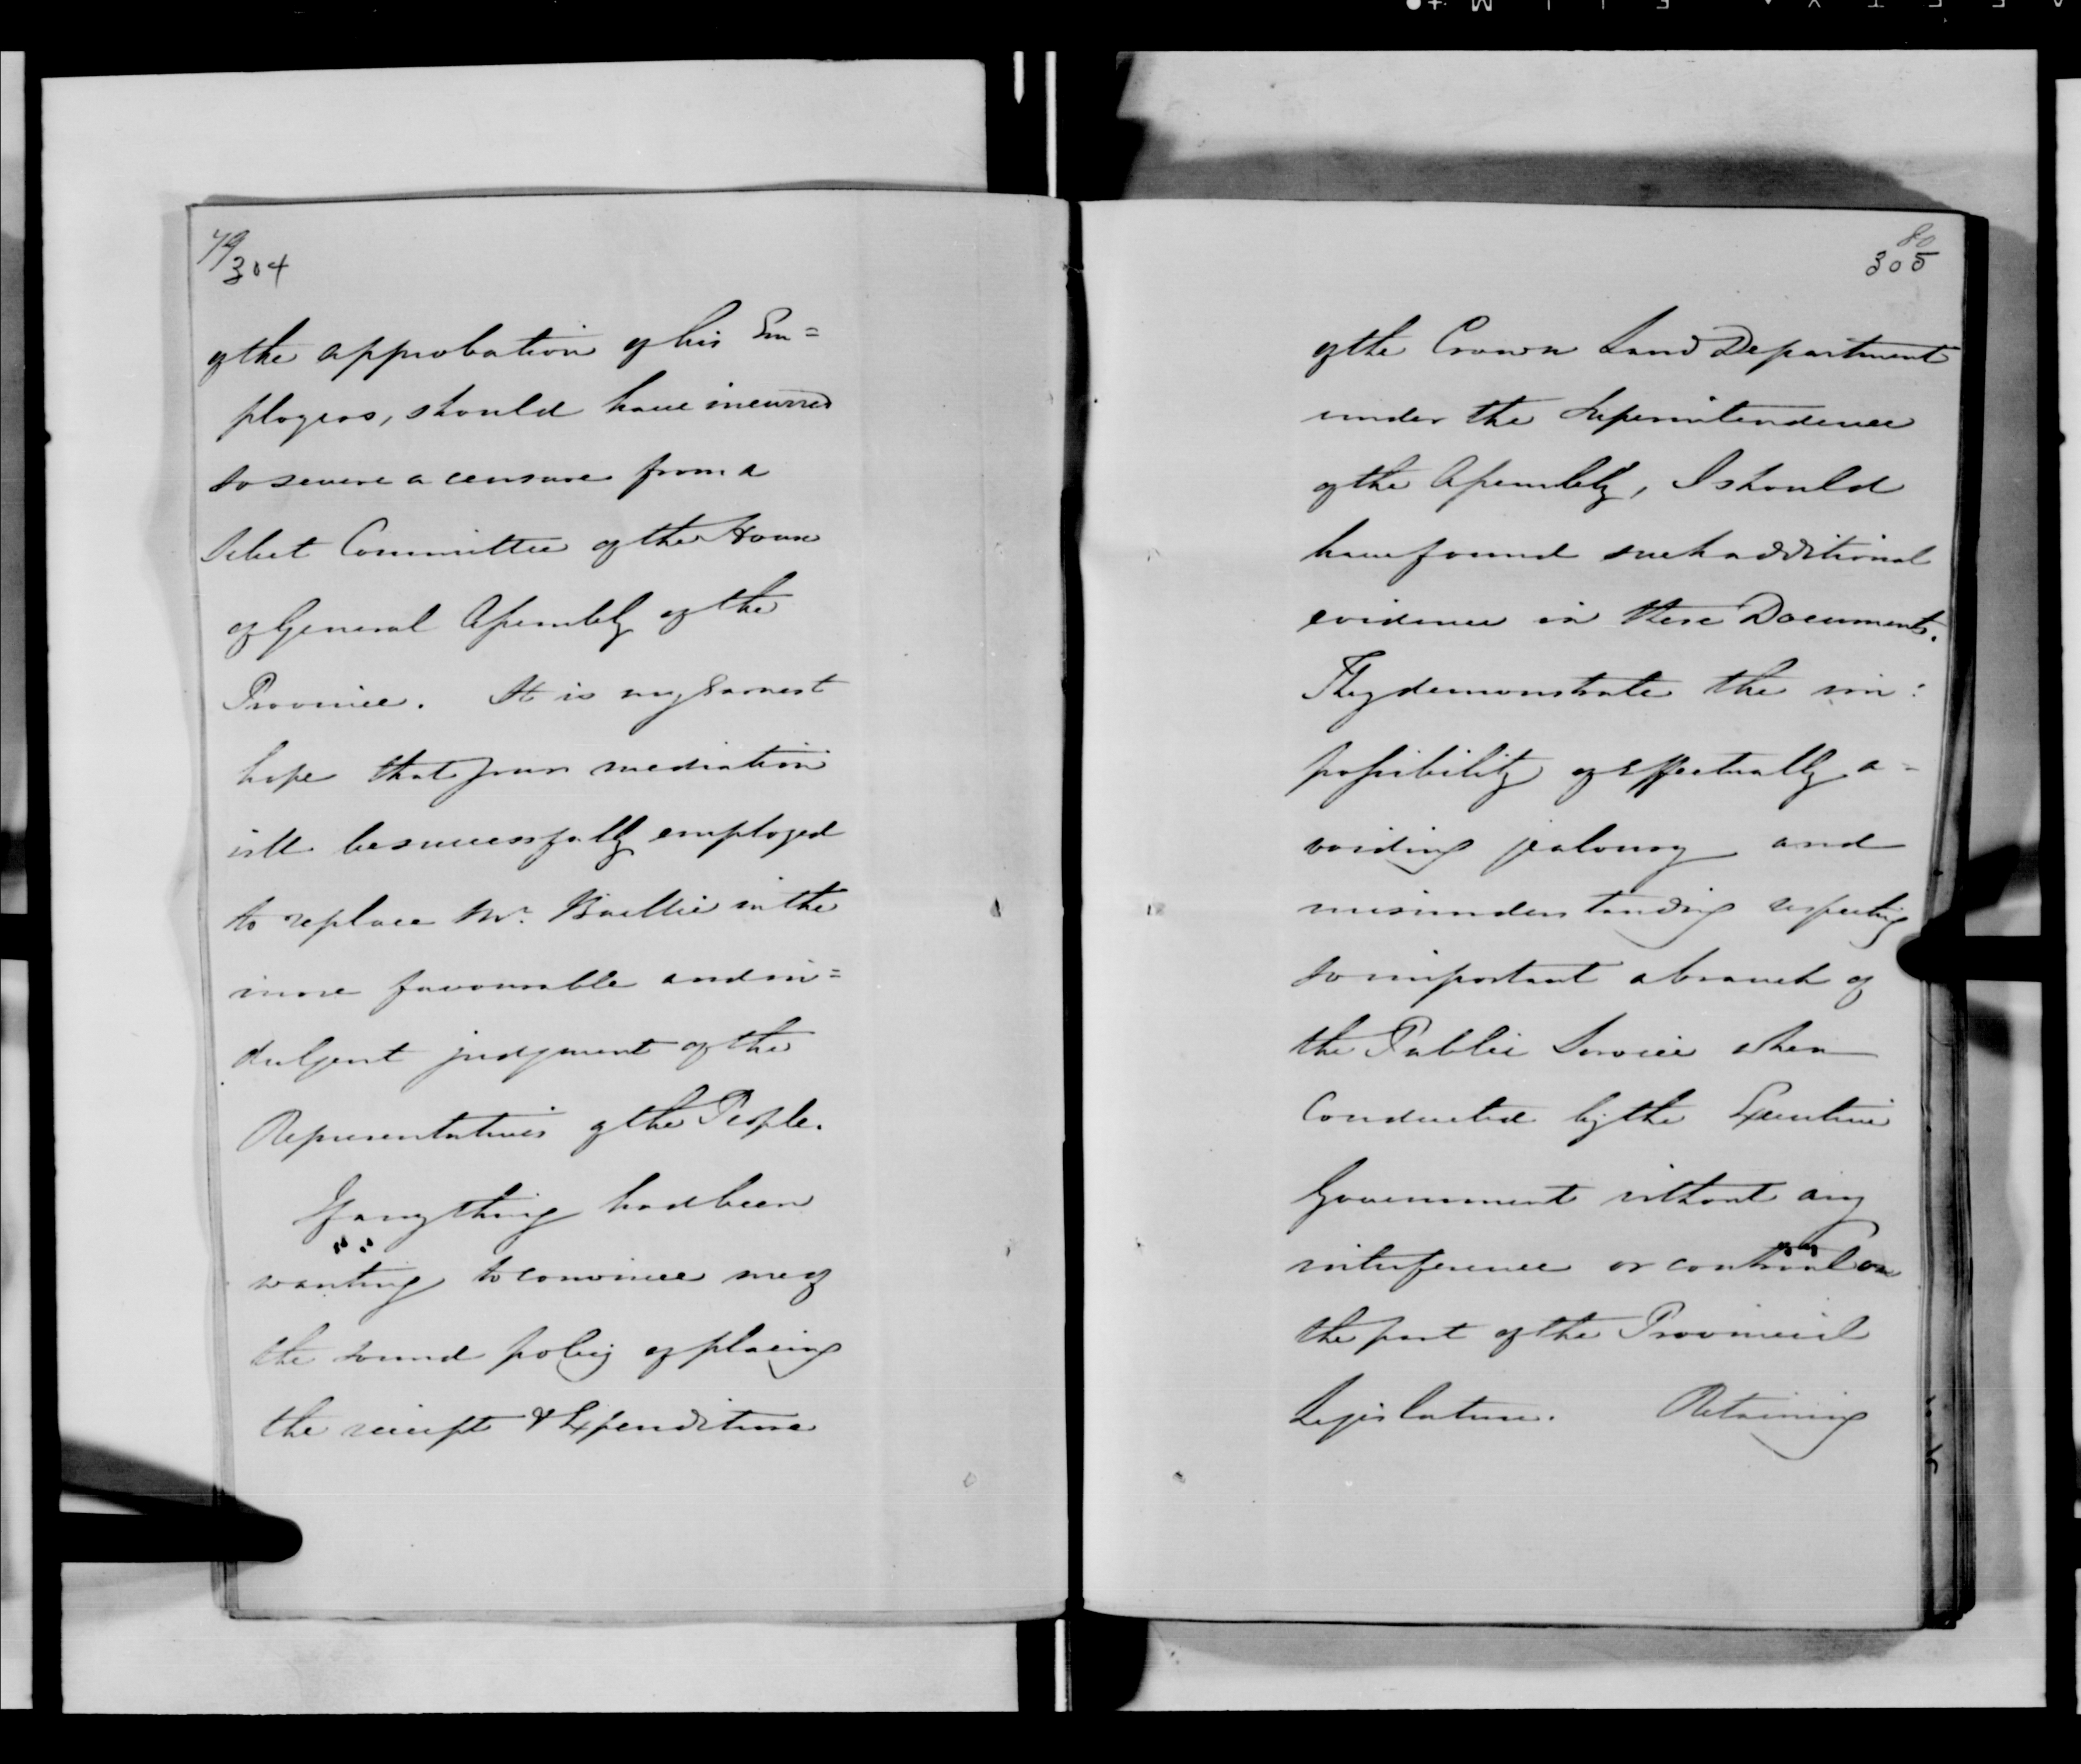 79
304
of the approbation of his Em=
ployers, should have incurred
so severe a censure from a
Select Committee of the House
of General Assembly of the
Province. It is my Earnest
hope that your mediation
will be successfully employed
to replace Mr. Baillie in the
more favourable and in=
dulgent judgment of the
Representatives of the People.
If any thing had been
wanting to convince me of
the sound policy of placing
the receipt & Expenditure
80
305
of the Crown Land Department
under the Superintendence
of the Assembly, I should
have found such additional
evidence in these Documents.
They demonstrate the im:
possibility of Effectually a=
voiding jealousy and
misunderstanding respecting
so important a branch of
the Public Service when
Conducted by the Executive
Government without any
interference or control on
the part of the Provincial
Legislature. Retaining